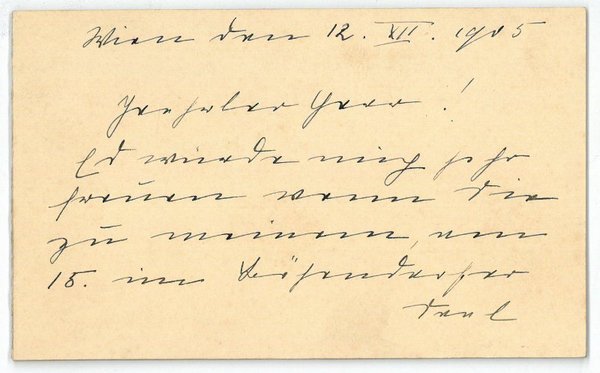 Wien den 12. XII. 1905
Geehrter Herr!
Es würde mich sehr
freuen wenn Sie
zu meinem, am
15. im Bösendorfer
Saal